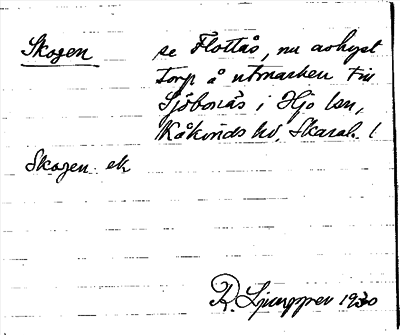 Skogen se Flottås, nu avhyst
torp å utmarken till
Sjöbonäs i Hjo lsn,
Kåkinds hd, Skarab. l
Skogen ek
R. Ljunggren 1930